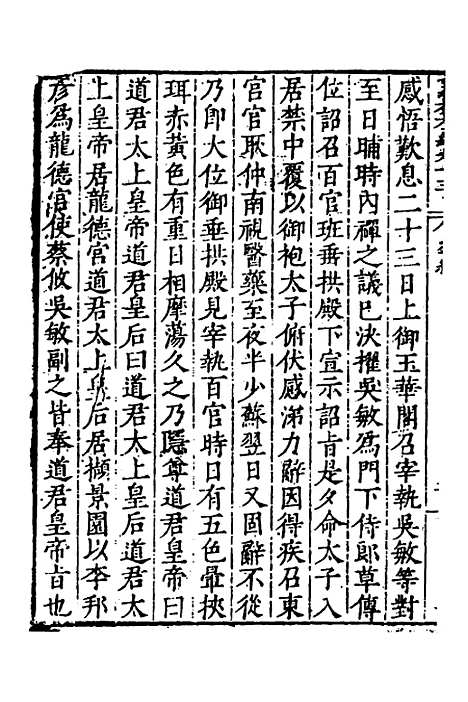 感悟歎息二十三日上御玉華閣召宰執吳敏等對
至日晡時內禪之議已決擢吳敏爲門下侍郎草傳
位詔召百官班垂拱殿下宣示詔旨是夕命太子入
居禁中覆以御袍太子俯伏感涕力辭因得疾召東
宮官耿仲南視醫藥至夜半少蘇翌日又固辭不從
乃即大位御垂拱殿見宰執百官時日有五色暈挾
珥赤黃色有重日相摩蕩久之乃隱尊道君皇帝曰
道君太上皇帝道君皇后曰道君太上皇后道君太
上皇帝居龍德宮道君太上皇后居擷景園以李邦
彥爲龍德宮使蔡攸吳敏副之皆奉道君皇帝旨也